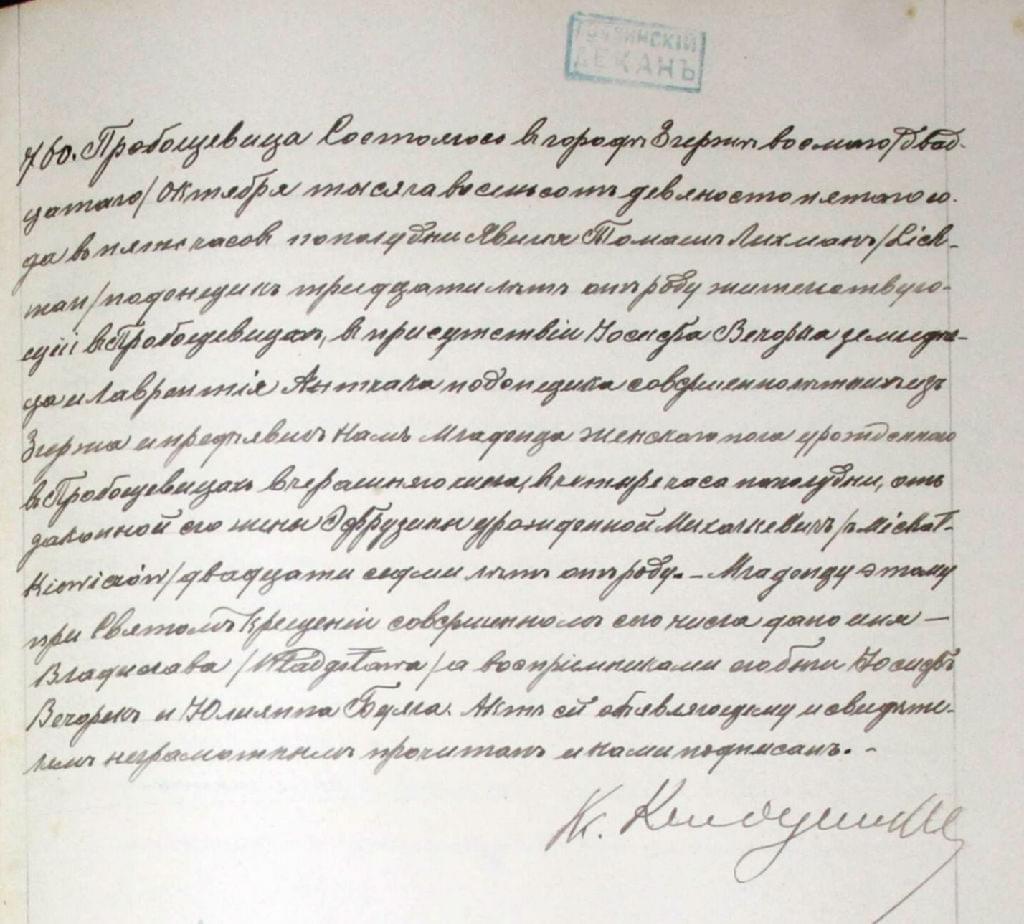 ДЕКАНЪ
760. Пробощевица Состоялось въ городѣ Згержѣ восьмаго /двад-
цатаго/ Октября тысяча восемьсотъ девяносто пятаго го-
да въ пять часовъ пополудни Явился Томашъ Лихманъ /Lich-
man/ поденщикъ тридцати лѣтъ отъ роду жительствую-
щій въ Пробощевицахъ, въ присутствіи Іосифа Вечорка земледѣль-
ца и Лаврентія Антчака поденщика совершеннолѣтнихъ изъ
Згержа и предъявилъ намъ младенца женскаго пола урожденнаго
въ Пробощевицахъ вчерашняго числа, въ четыре часа пополудни, отъ
законной его жены Эфрузины урожденной Михалкевичъ /z Michał-
kiewiczów/ двадцати семи лѣтъ отъ роду. – Младенцу этому
при Святомъ Крещеніи совершенномъ сего числа дано имя –
Владислава /Władysława/ а воспріемниками его были Іосифъ
Вечорекъ и Юліянна Буяга. Актъ сей объявляющему и свидѣте-
лямъ неграмотнымъ прочитанъ и нами подписанъ. –
К.